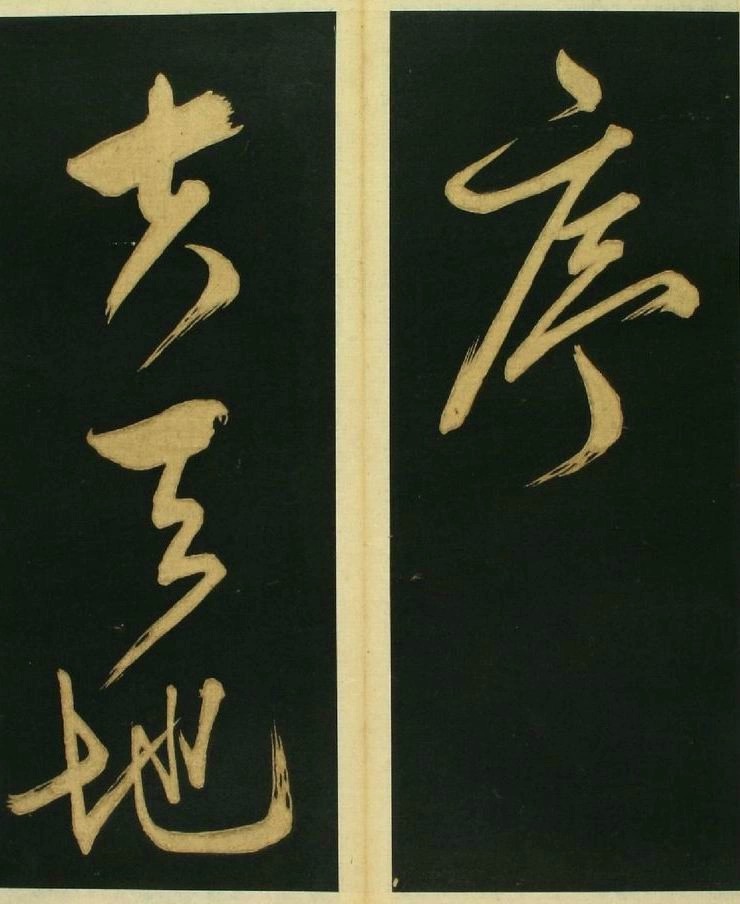 序
夫天地